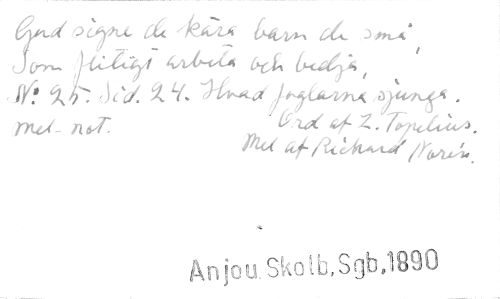 Gud signe de kära barn de små,
Som flitigt arbeta och bedja,
N:o 25. Sid. 24. Hvad foglarna sjunga.
mel. not. Ord af Z. Topelius.
Mel af Richard Norén.
Anjou. Skolb, Sgb, 1890